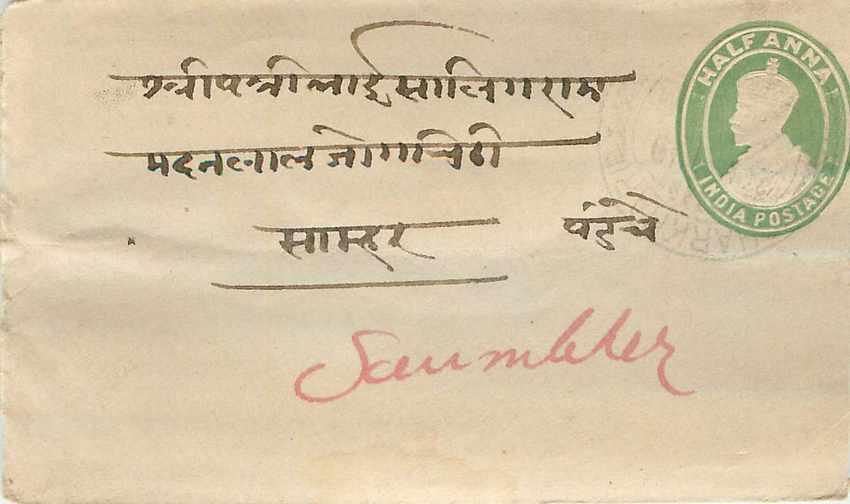 HALF ANNA
INDIA POSTAGE
श्रीपत्री भाई सालिगराम
मदनलाल जोग चिठी
साम्हर पहुंचे
Saumbher